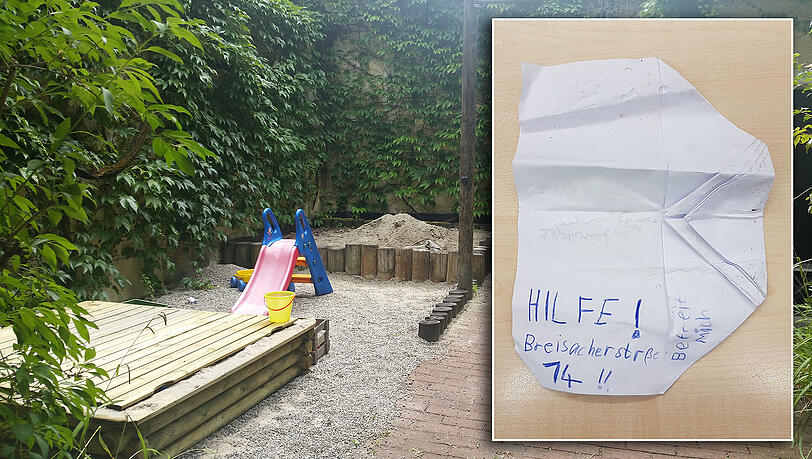 HILFE!
Breisacherstrße
14 !!
Befreit
Mich